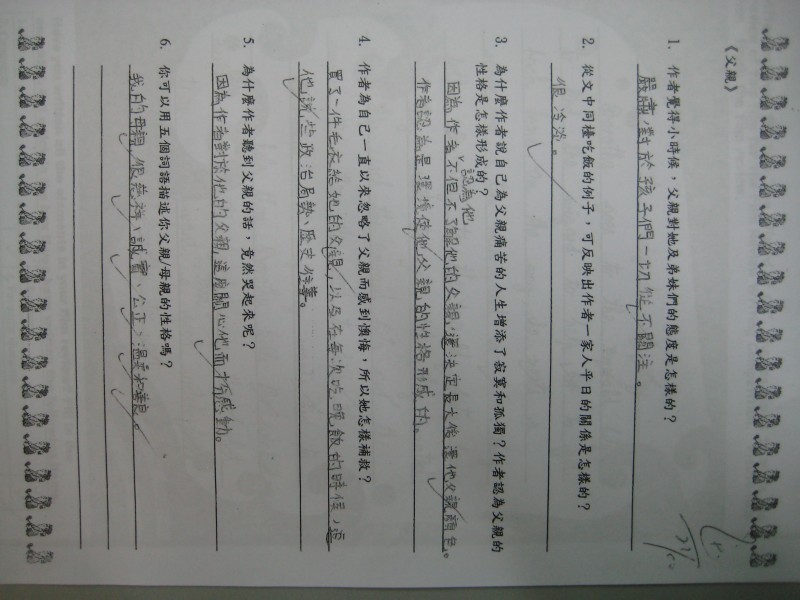 《父親》
1. 作者覺得小時候，父親對她及弟妹們的態度是怎樣的？
嚴肅，對於孩子們一切從不關注。
2. 從文中同檯吃飯的例子，可反映出作者一家人平日的關係是怎樣的？
很冷淡。
3. 為什麼作者說自己為父親痛苦的人生增添了寂寞和孤獨？作者認為父親的
性格是怎樣形成的？
認為他
因為作者不但不了解他的父親，還決定長大後還他父親
作者認為是環境使他父親的性格形成的。
4. 作者為自己一直以來忽略了父親而感到懊悔，所以她怎樣補救？
買了一件毛衣給她的父親，以及在每次吃晚飯的時候，逗
他談些政治局勢、歷史往事。
5. 為什麼作者聽到父親的話，竟然哭起來呢？
因為作者對於他的父親這麼關心他而十分感動。
6. 你可以用五個詞語描述你父親/母親的性格嗎？
我的母親很慈祥、誠實、公正、溫柔和善良。